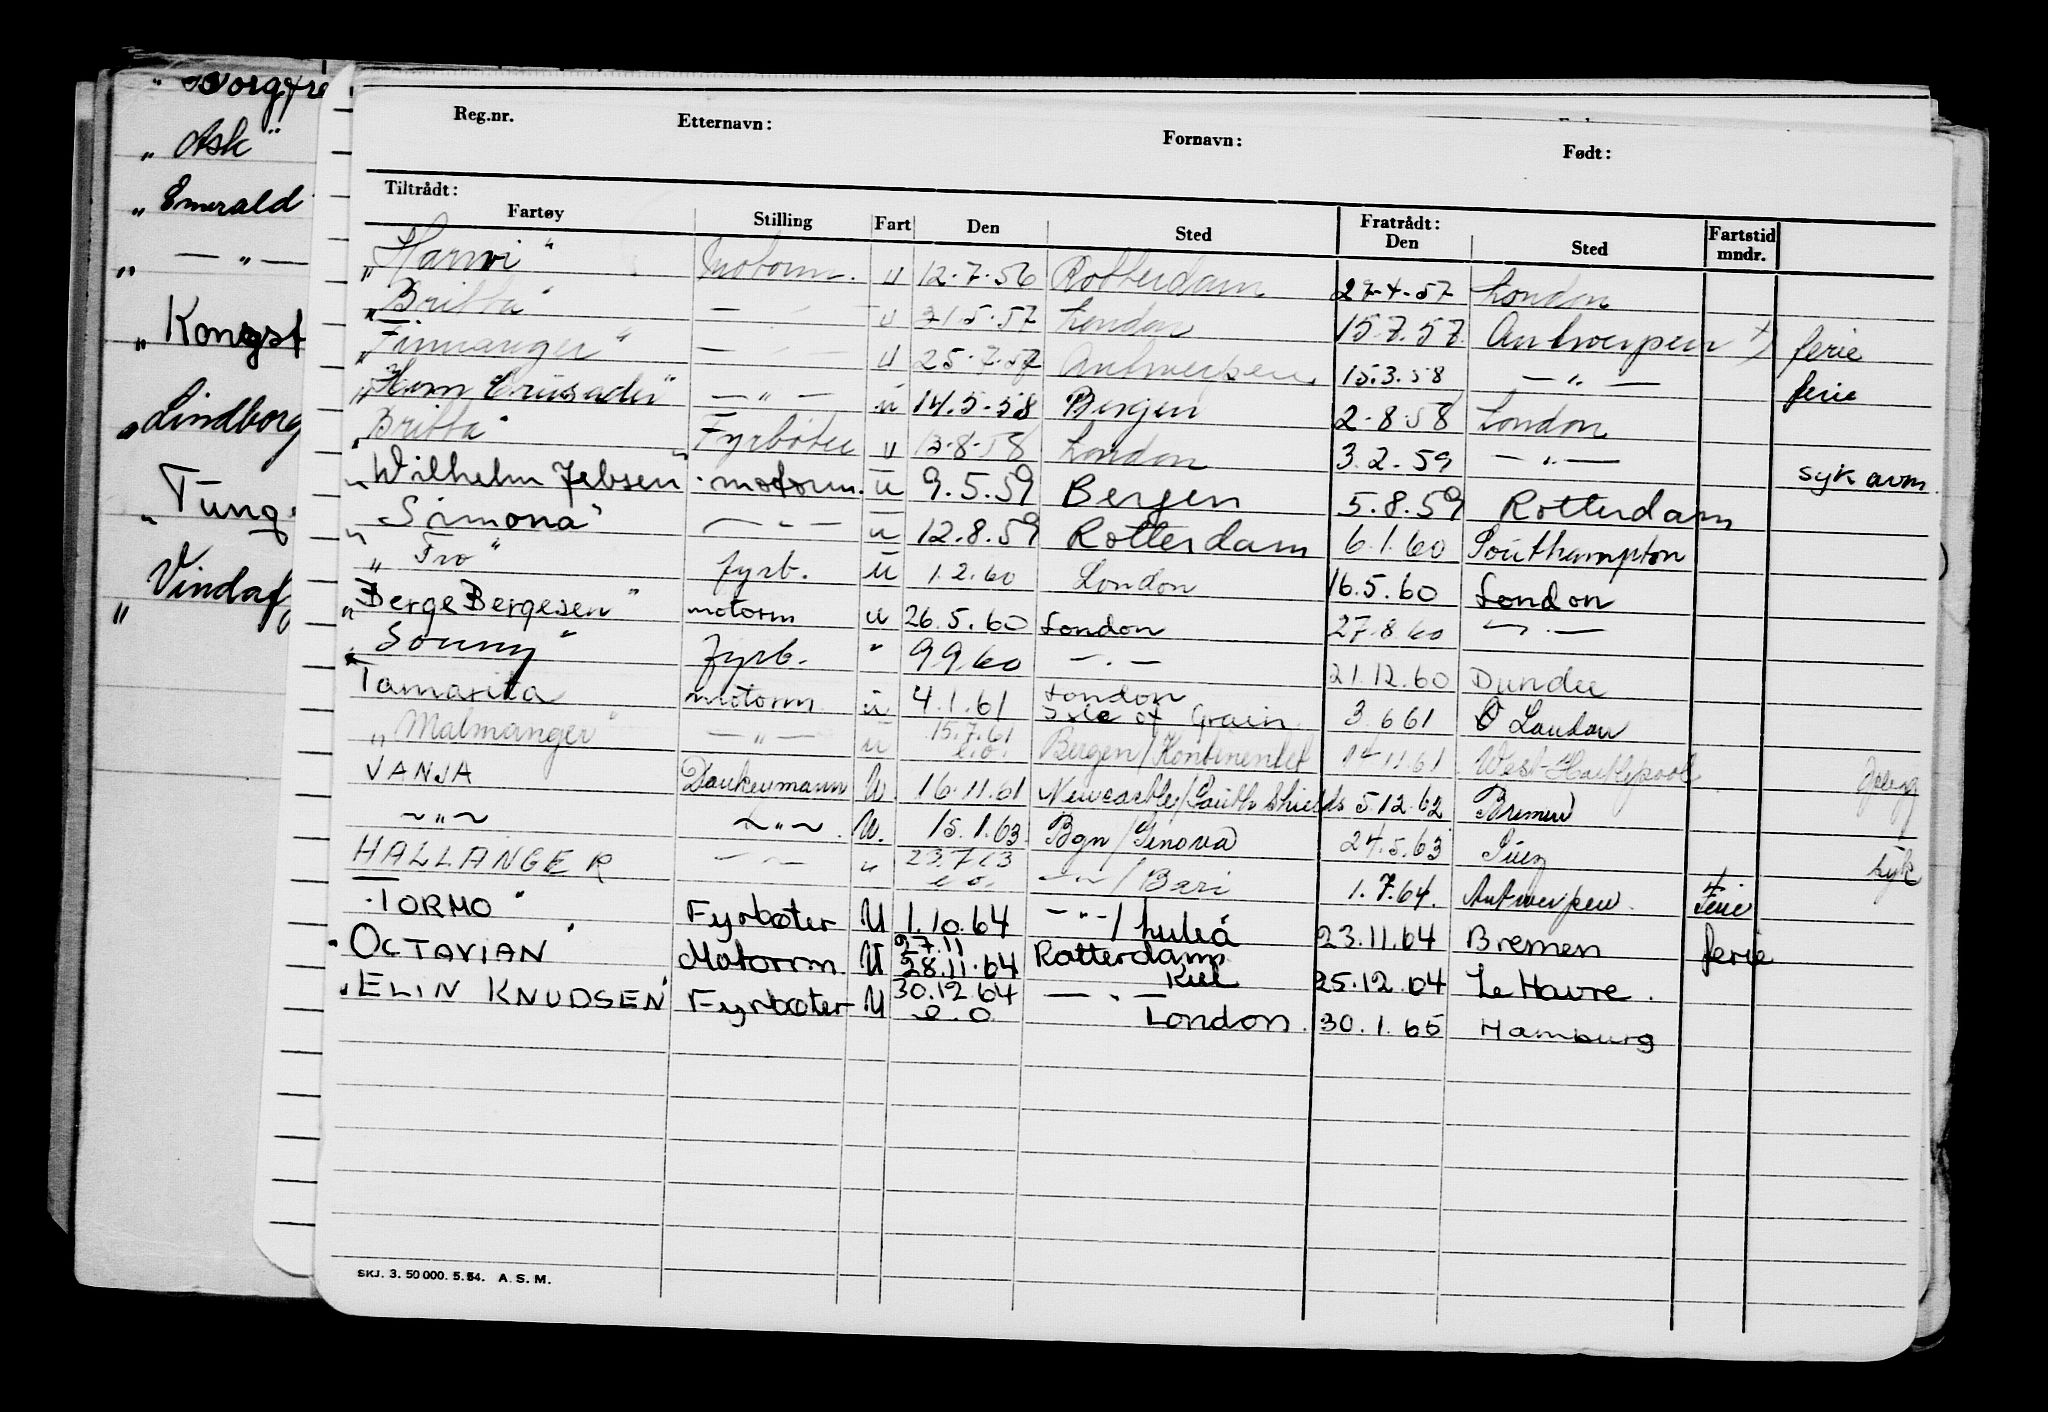 „ Borgfre
„ Ask"
„ Emerald
„ — " —
„ Kongst
„ Lindborg
„ Tung
„ Vindaf
Reg.nr. Etternavn: Fornavn: Født:
Tiltrådt: Fratrådt:
Fartøy Stilling Fart Den Sted Den Sted Fartstid mndr.
„Harwi" Motorm. u 12.7.56 Rotterdam 27.4.57 London
„Britta" — " — u 21.5.57 London 15.7.57 Antwerpen ferie
„Finnanger" — " — u 25.7.57 Antwerpen 15.3.58 — " — ferie
„Herm Crusader" — " — u 14.5.58 Bergen 2.8.58 London
„Britta" Fyrbøter u 13.8.58 London 3.2.59 — " — syk avm.
„Wilhelm Jebsen" motorm. u 9.5.59 Bergen 5.8.59 Rotterdam
„Simona" — " — u 12.8.59 Rotterdam 6.1.60 Southampton
„Fro" fyrb. u 1.2.60 London 16.5.60 London
„Berge Bergesen" motorm u 26.5.60 London 27.8.60 — " —
„Sonny" fyrb. " 9.9.60 — " — 21.12.60 Dundee
Tamarita motorm u 4.1.61 London 3.6.61 London
„Malmanger" — " — u 15.7.61 e.o. Isle of Grain Bergen/Kontinentet 14.11.61 West-Hartlepool
VANJA Donkeymann U. 16.11.61 Newcastle/South Shields 5.12.62 Bremen
~ " ~ ~ " ~ U. 15.1.63 Bgn/Genova 24.5.63 Suez syk
HALLANGER — " — " 23.7.63 e.o. — " —/Bari 1.7.64. Antwerpen. Ferie
"TORMO" Fyrbøter U 1.10.64 — " —/Luleå 23.11.64 Bremen ferie
"OCTAVIAN" Motorm U 27.11 28.11.64 Rotterdam Kiel 25.12.64 Le Havre.
"ELIN KNUDSEN" Fyrbøter U 30.12.64 e.o — " — London. 30.1.65 Hamburg
SKJ. 3. 50 000. 5. 54. A. S. M.